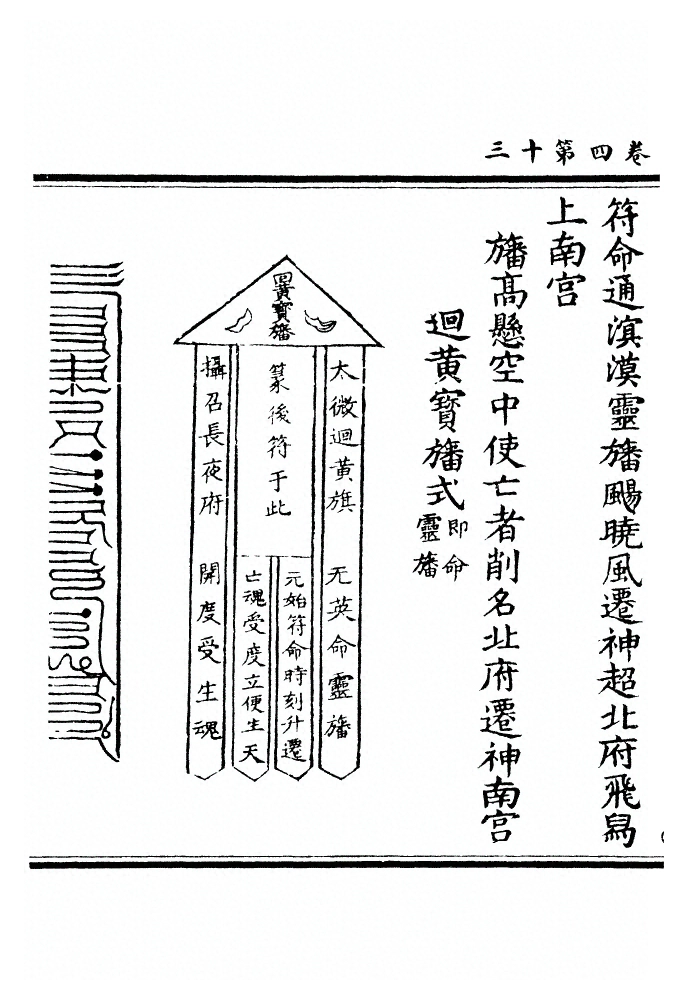 卷四第十三
符命通溟漠靈旛颺曉風遷神超北府飛舄
上南宮
旛高懸空中使亡者削名北府遷神南宮
迴黄寳旛式
即命
靈旛
回黄寳旛
太微迴黄旗 无英命靈旛
篆後符于此
元始符命時刻升遷
亡魂受度立便生天
攝召長夜府 開度受生魂